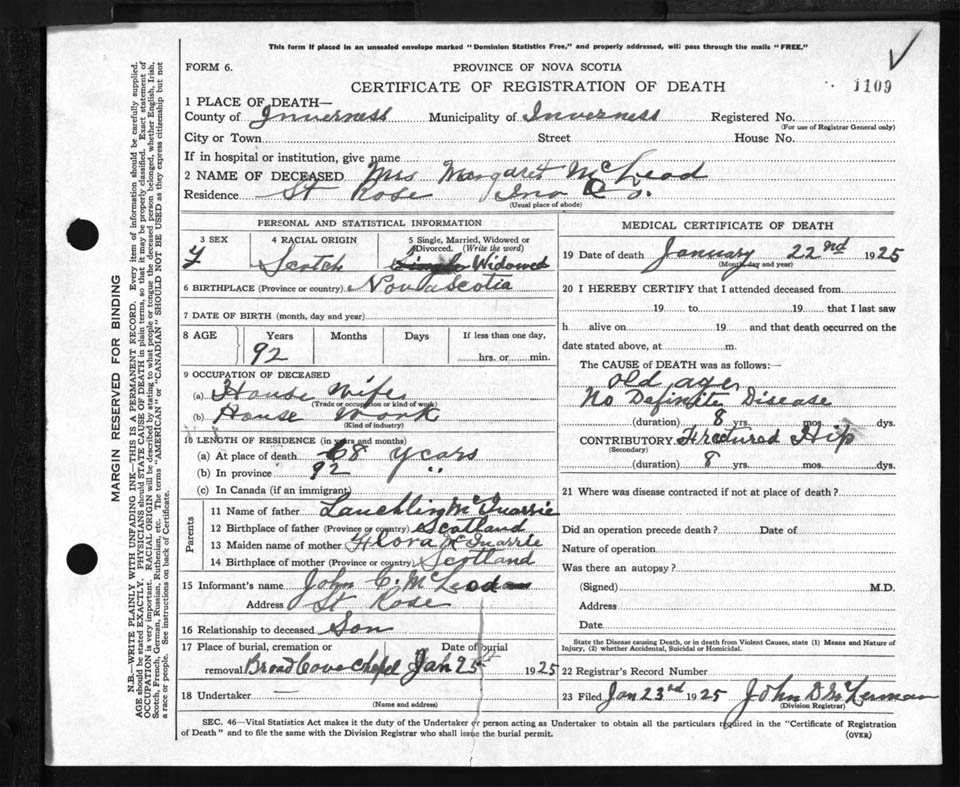 This form if placed in an unsealed envelope marked "Dominion Statistics Free," and properly addressed, will pass through the mails "FREE."
FORM 6.
PROVINCE OF NOVA SCOTIA
CERTIFICATE OF REGISTRATION OF DEATH
1109
1 PLACE OF DEATH—
County of Inverness Municipality of Inverness Registered No.
(For use of Registrar General only)
City or Town Street House No.
If in hospital or institution, give name
2 NAME OF DECEASED Mrs Margaret McLeod
Residence St Rose Inv Co.
(Usual place of abode)
PERSONAL AND STATISTICAL INFORMATION
3 SEX 4 RACIAL ORIGIN 5 Single, Married, Widowed or Divorced. (Write the word)
F Scotch Single Widowed
6 BIRTHPLACE (Province or country) Nova Scotia
7 DATE OF BIRTH (month, day and year)
8 AGE Years Months Days If less than one day,
92 hrs. or min.
9 OCCUPATION OF DECEASED
(a) House Wife
(Trade or occupation or kind of work)
(b) House Work
(Kind of industry)
10 LENGTH OF RESIDENCE (in years and months)
(a) At place of death 68 years
(b) In province 92 "
(c) In Canada (if an immigrant)
Parents
11 Name of father Lauchlin McQuarrie
12 Birthplace of father (Province or country) Scotland
13 Maiden name of mother Flora McQuarrie
14 Birthplace of mother (Province or country) Scotland
15 Informant's name John C. McLeod
Address St Rose
16 Relationship to deceased Son
17 Place of burial, cremation or Date of burial
removal Broad Cove Chapel Jan 25 1925
18 Undertaker —
(Name and address)
MEDICAL CERTIFICATE OF DEATH
19 Date of death January 22nd 1925
(Month, day and year)
20 I HEREBY CERTIFY that I attended deceased from
19 to 19 that I last saw
h alive on 19 and that death occurred on the
date stated above, at m.
The CAUSE OF DEATH was as follows:—
old age
No Definite Disease
(duration) 8 yrs. mos. dys.
CONTRIBUTORY. Frectured Hip
(Secondary)
(duration) 8 yrs. mos. dys.
21 Where was disease contracted if not at place of death?
Did an operation precede death? Date of
Nature of operation
Was there an autopsy?
(Signed) M.D.
Address
Date
State the Disease causing Death, or in death from Violent Causes, state (1) Means and Nature of
Injury, (2) whether Accidental, Suicidal or Homicidal.
22 Registrar's Record Number
23 Filed Jan 23rd 1925 John D.
(Division Registrar)
SEC. 46—Vital Statistics Act makes it the duty of the Undertaker or person acting as Undertaker to obtain all the particulars required in the "Certificate of Registration
of Death" and to file the same with the Division Registrar who shall issue the burial permit.
(OVER)
MARGIN RESERVED FOR BINDING
N.B.—WRITE PLAINLY WITH UNFADING INK—THIS IS A PERMANENT RECORD. Every item of information should be carefully supplied.
AGE should be stated EXACTLY. PHYSICIANS should STATE CAUSE OF DEATH in plain terms, so that it may be properly classified. Exact statement of
OCCUPATION is very important. RACIAL ORIGIN will be described by stating to what people or tongue the deceased person belonged, whether English, Irish,
Scotch, French, German, Russian, Ruthenian, etc. The terms "AMERICAN" or "CANADIAN" SHOULD NOT BE USED as they express citizenship but not
a race or people. See instructions on back of Certificate.